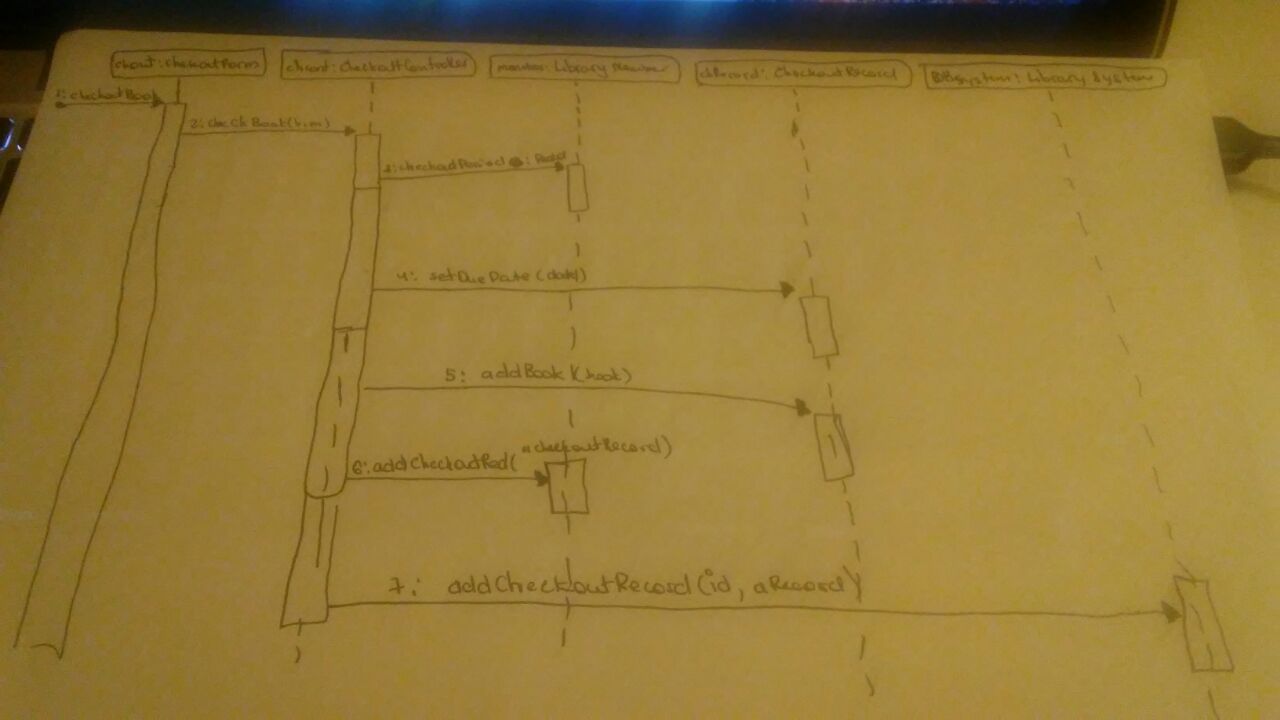 chout: CheckoutForm
chcont: CheckoutController
member: Library Member
chRecord: CheckoutRecord
system: Library System
1: checkoutBook
2: checkBook(b,m)
3: checkoutPeriod
4: setDueDate (date)
5: addBook (book)
6: addCheckoutRed( checkoutRecord)
7: addCheckoutRecord (id, aRecord)